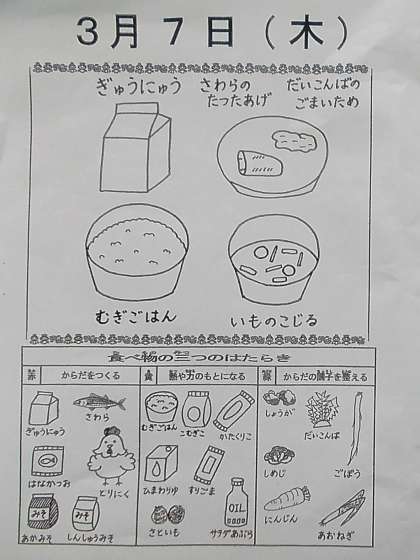 ３月７日（木）
ぎゅうにゅう
さわらの
たつたあげ
だいこんばの
ごまいため
むぎごはん
いものこじる
食べ物の三つのはたらき
赤 からだをつくる
黄 熱や力のもとになる
緑 からだの調子を整える
ぎゅうにゅう
さわら
はなかつお
とりにく
あかみそ
みそ
しんしゅうみそ
みそ
むぎごはん
こむぎこ
かたくりこ
ひまわりゆ
すりごま
さといも
OIL
サラダあぶら
しょうが
だいこんば
しめじ
ごぼう
にんじん
あおねぎ